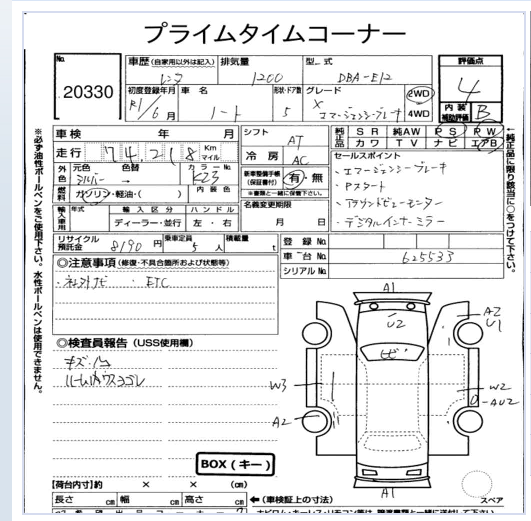 プライムタイムコーナー
No. 20330
車歴 (自家用以外は記入) レンタ
排気量 1200
型式 DBA-E12
評価点 4
内装補助評価 B
初度登録年月 R1/6月
車名 ノート
形状・ドア数 5
グレード X エマージェンシーブレーキ
2WD
4WD
車検 年 月
シフト AT
純正品 SR 純AW PS PW
カワ TV ナビ エアB
走行 74,218 Km マイル
冷房 AC
外色 元色 シルバー 色替 → カラーNo. K23
新車整備手帳(保証書付) 有・無
※書類と一緒に保管下さい。
セールスポイント
・エマージェンシーブレーキ
・Pスタート
・アラウンドビューモニター
・デジタルインナーミラー
燃料 ガソリン・軽油・( ) 内装色
名義変更期限 月 日
輸入車用 年式 輸入区分 ハンドル
ディーラー・並行 左・右
リサイクル預託金 8190円 乗車定員 5人 積載量 t
登録No.
車台No. 625533
シリアルNo.
◎注意事項 (修復・不具合箇所および状態等)
・社外ナビ ・ETC
◎検査員報告 (USS使用欄)
キズ・凹
ルーム内ウスヨゴレ
A1
U2
A2
U1
W3
W2
A2
A1
BOX (キー)
【荷台内寸】約 × × (cm)
長さ cm 幅 cm 高さ cm ←(車検証上の寸法)
スペア
※必ず油性ボールペンをご使用下さい。水性ボールペンは使用できません。
←純正品に限り該当に○をつけて下さい。